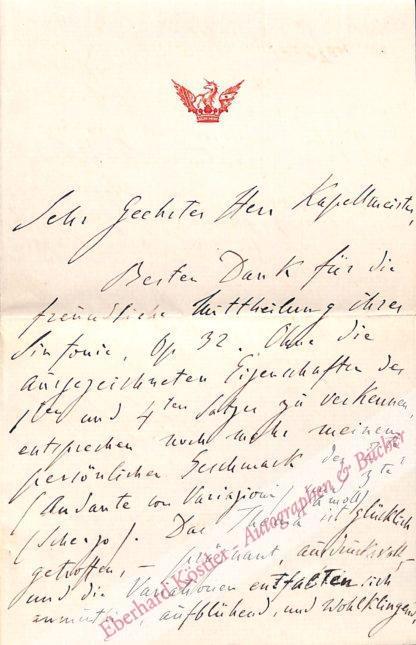 Sehr Geehrter Herr Kapellmeister,
Besten Dank für die
freundliche Mittheilung ihrer
Sinfonie, Op 32. Ohne die
ausgezeichneten Eigenschaften des
1ten und 4ten Satzes zu verkennen,
entsprechen noch mehr meinem
persönlichen Geschmack der
(Andante con Variazioni) 3te
(Scherzo). Das Thema ist glücklich
getroffen, – ausdrucksvoll,
und die Variationen entfalten sich
anmuthig, aufblühend, und wohlklingend,
Eberhard Köstler Autographen & Bücher